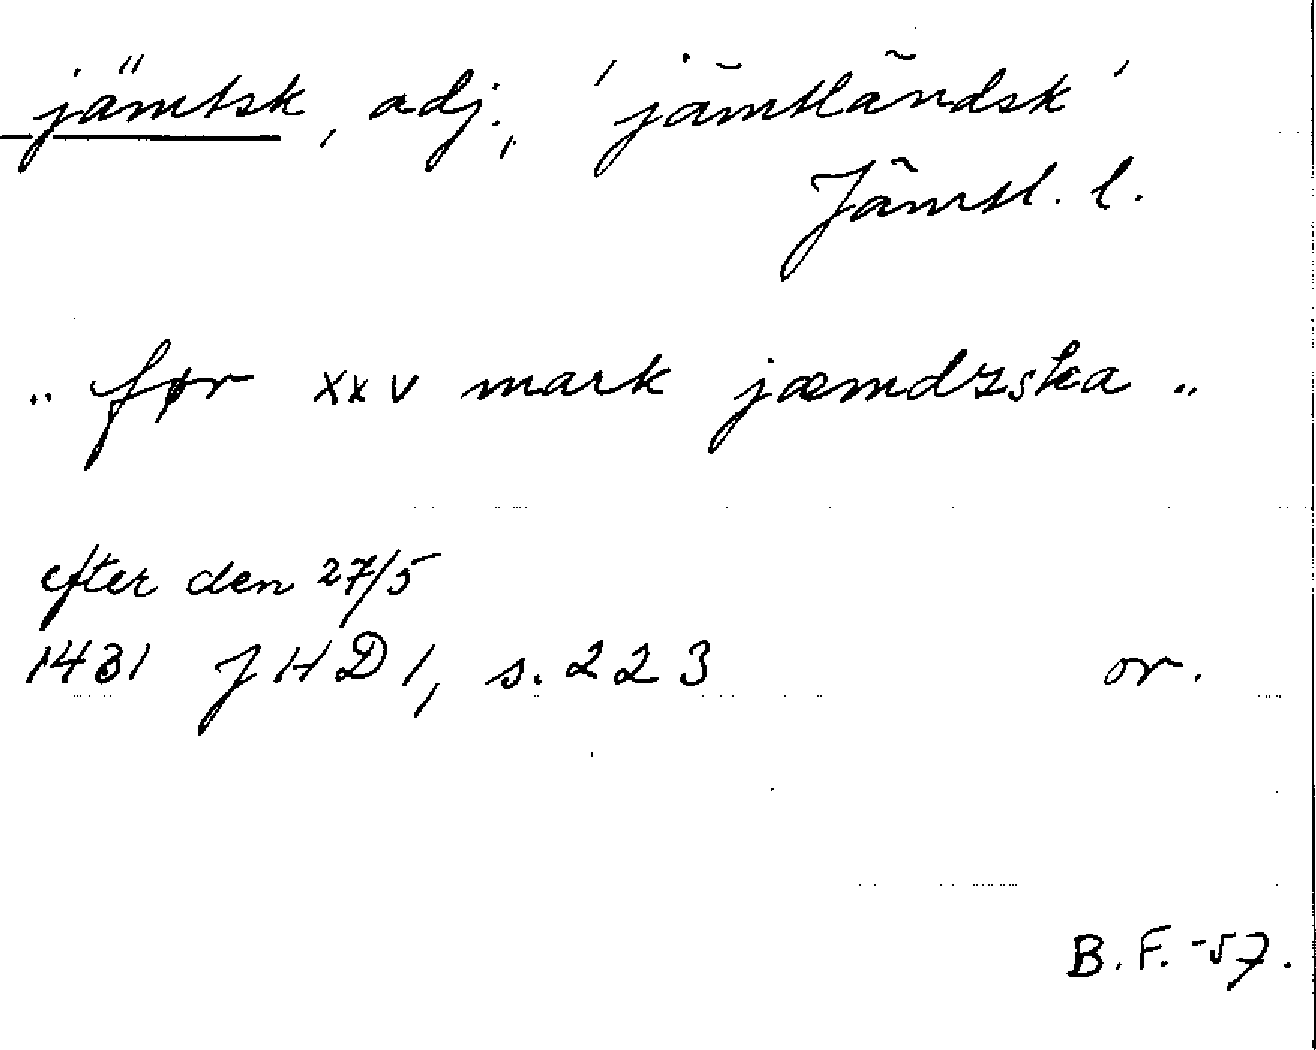 jämtsk, adj., 'jämtländsk'
Jämtl. l.
„ før xxv mark jæmdzska „
efter den 27/5
1431 JHD 1, s. 223 or.
B. F. -57.